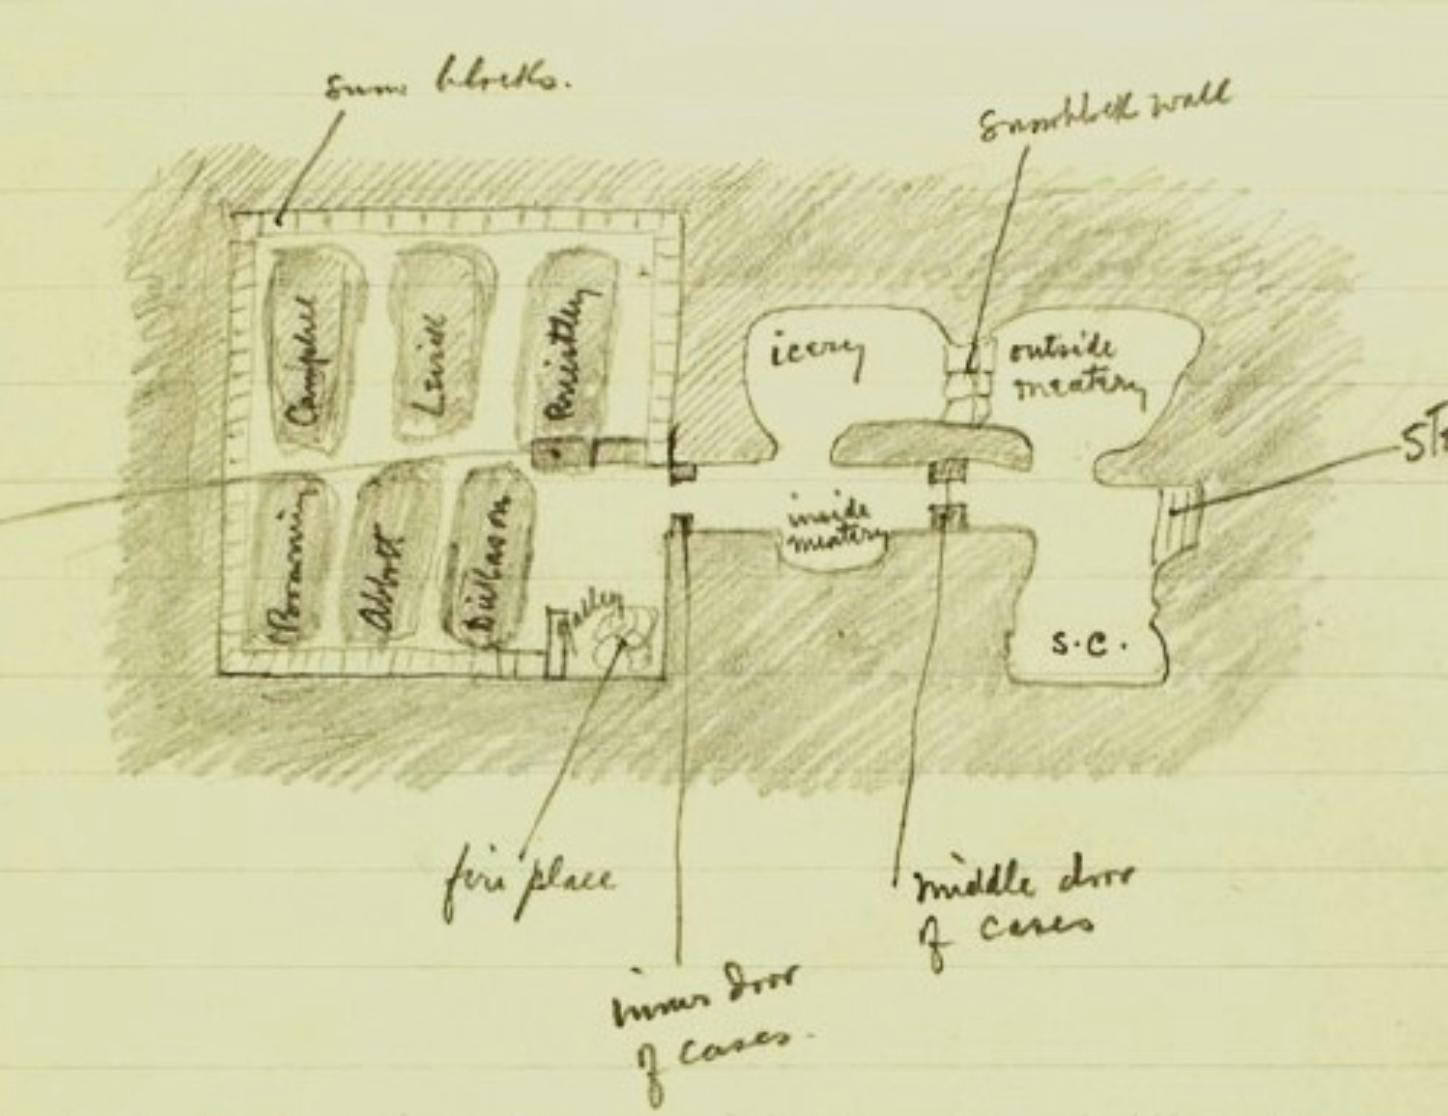 snow blocks.
Snowblock wall
Campbel
Levick
Priestley
icery
outside
meatery
Browning
Abbott
Dickason
inside
meatery
galley
S.C.
fire place
middle door
of cases
inner door
of cases.